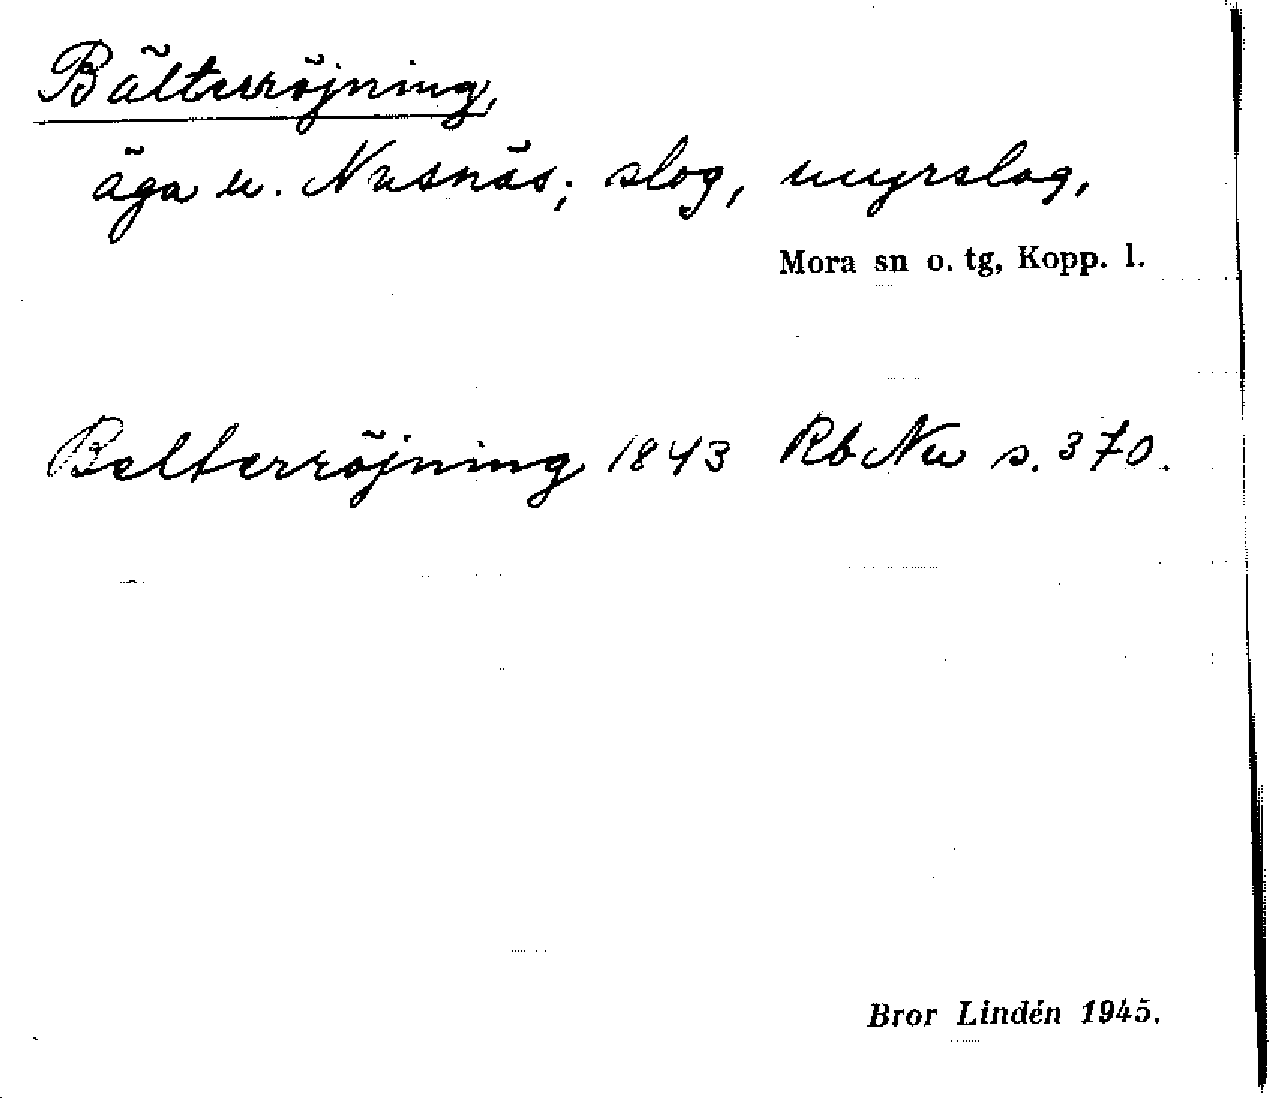 Bälterröjning,
äga u. Nusnäs; slog, myrslog,
Mora sn o. tg, Kopp. l.
Belterröjning 1843 Rb Nu s. 370.
Bror Lindén 1945.